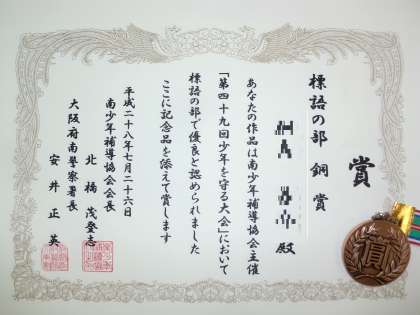 賞
標語の部 銅賞
殿
あなたの作品は南少年補導協会主催
「第四十九回少年を守る大会」において
標語の部で優良と認められました
ここに記念品を添えて賞します
平成二十八年七月二十六日
南少年補導協会会長
北橋茂登志
大阪府南警察署長
安井正英
賞